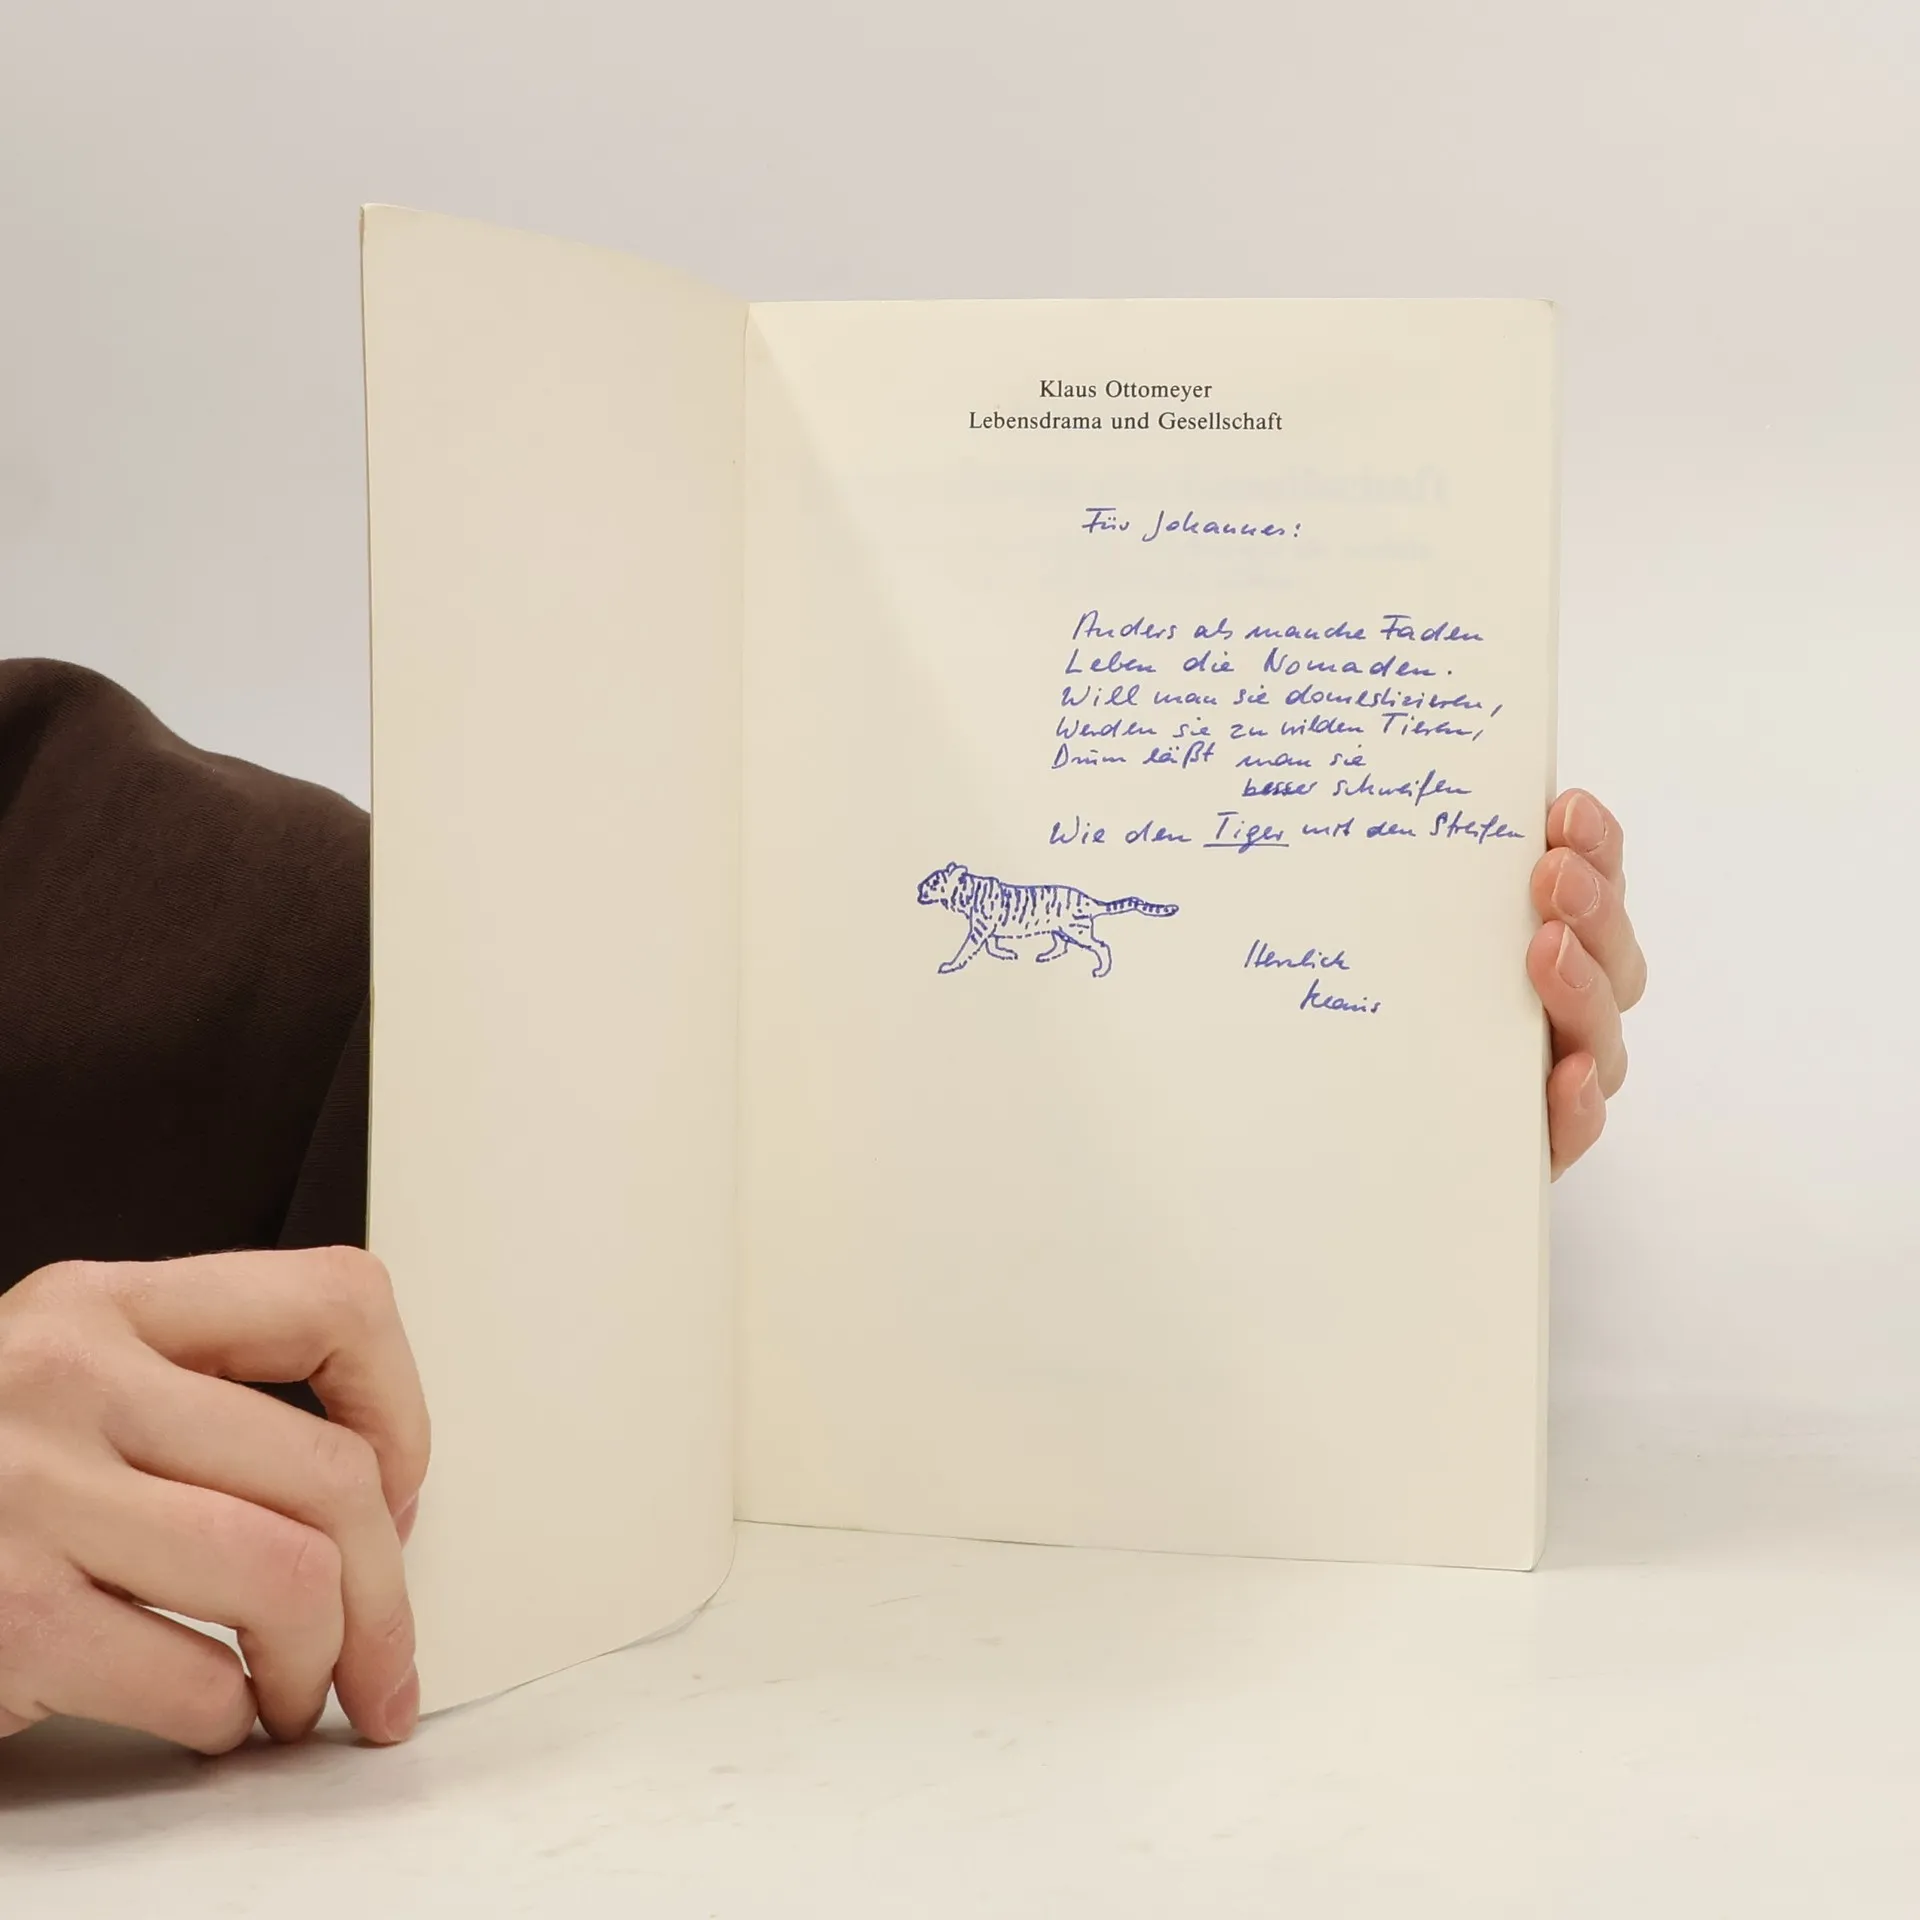 Klaus Ottomeyer
Lebensdrama und Gesellschaft
Für Johannes:
Anders als manche Faden
Leben die Nomaden.
Will man sie domestizieren,
Werden sie zu wilden Tieren,
Drum läßt man sie
besser schweifen
Wie den Tiger mit den Streifen
Herzlich
Klaus